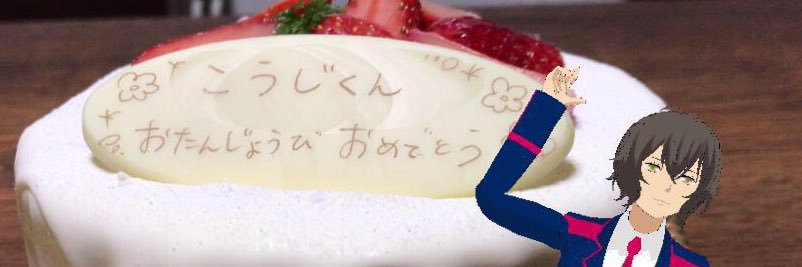 こうじくん
おたんじょうび おめでとう